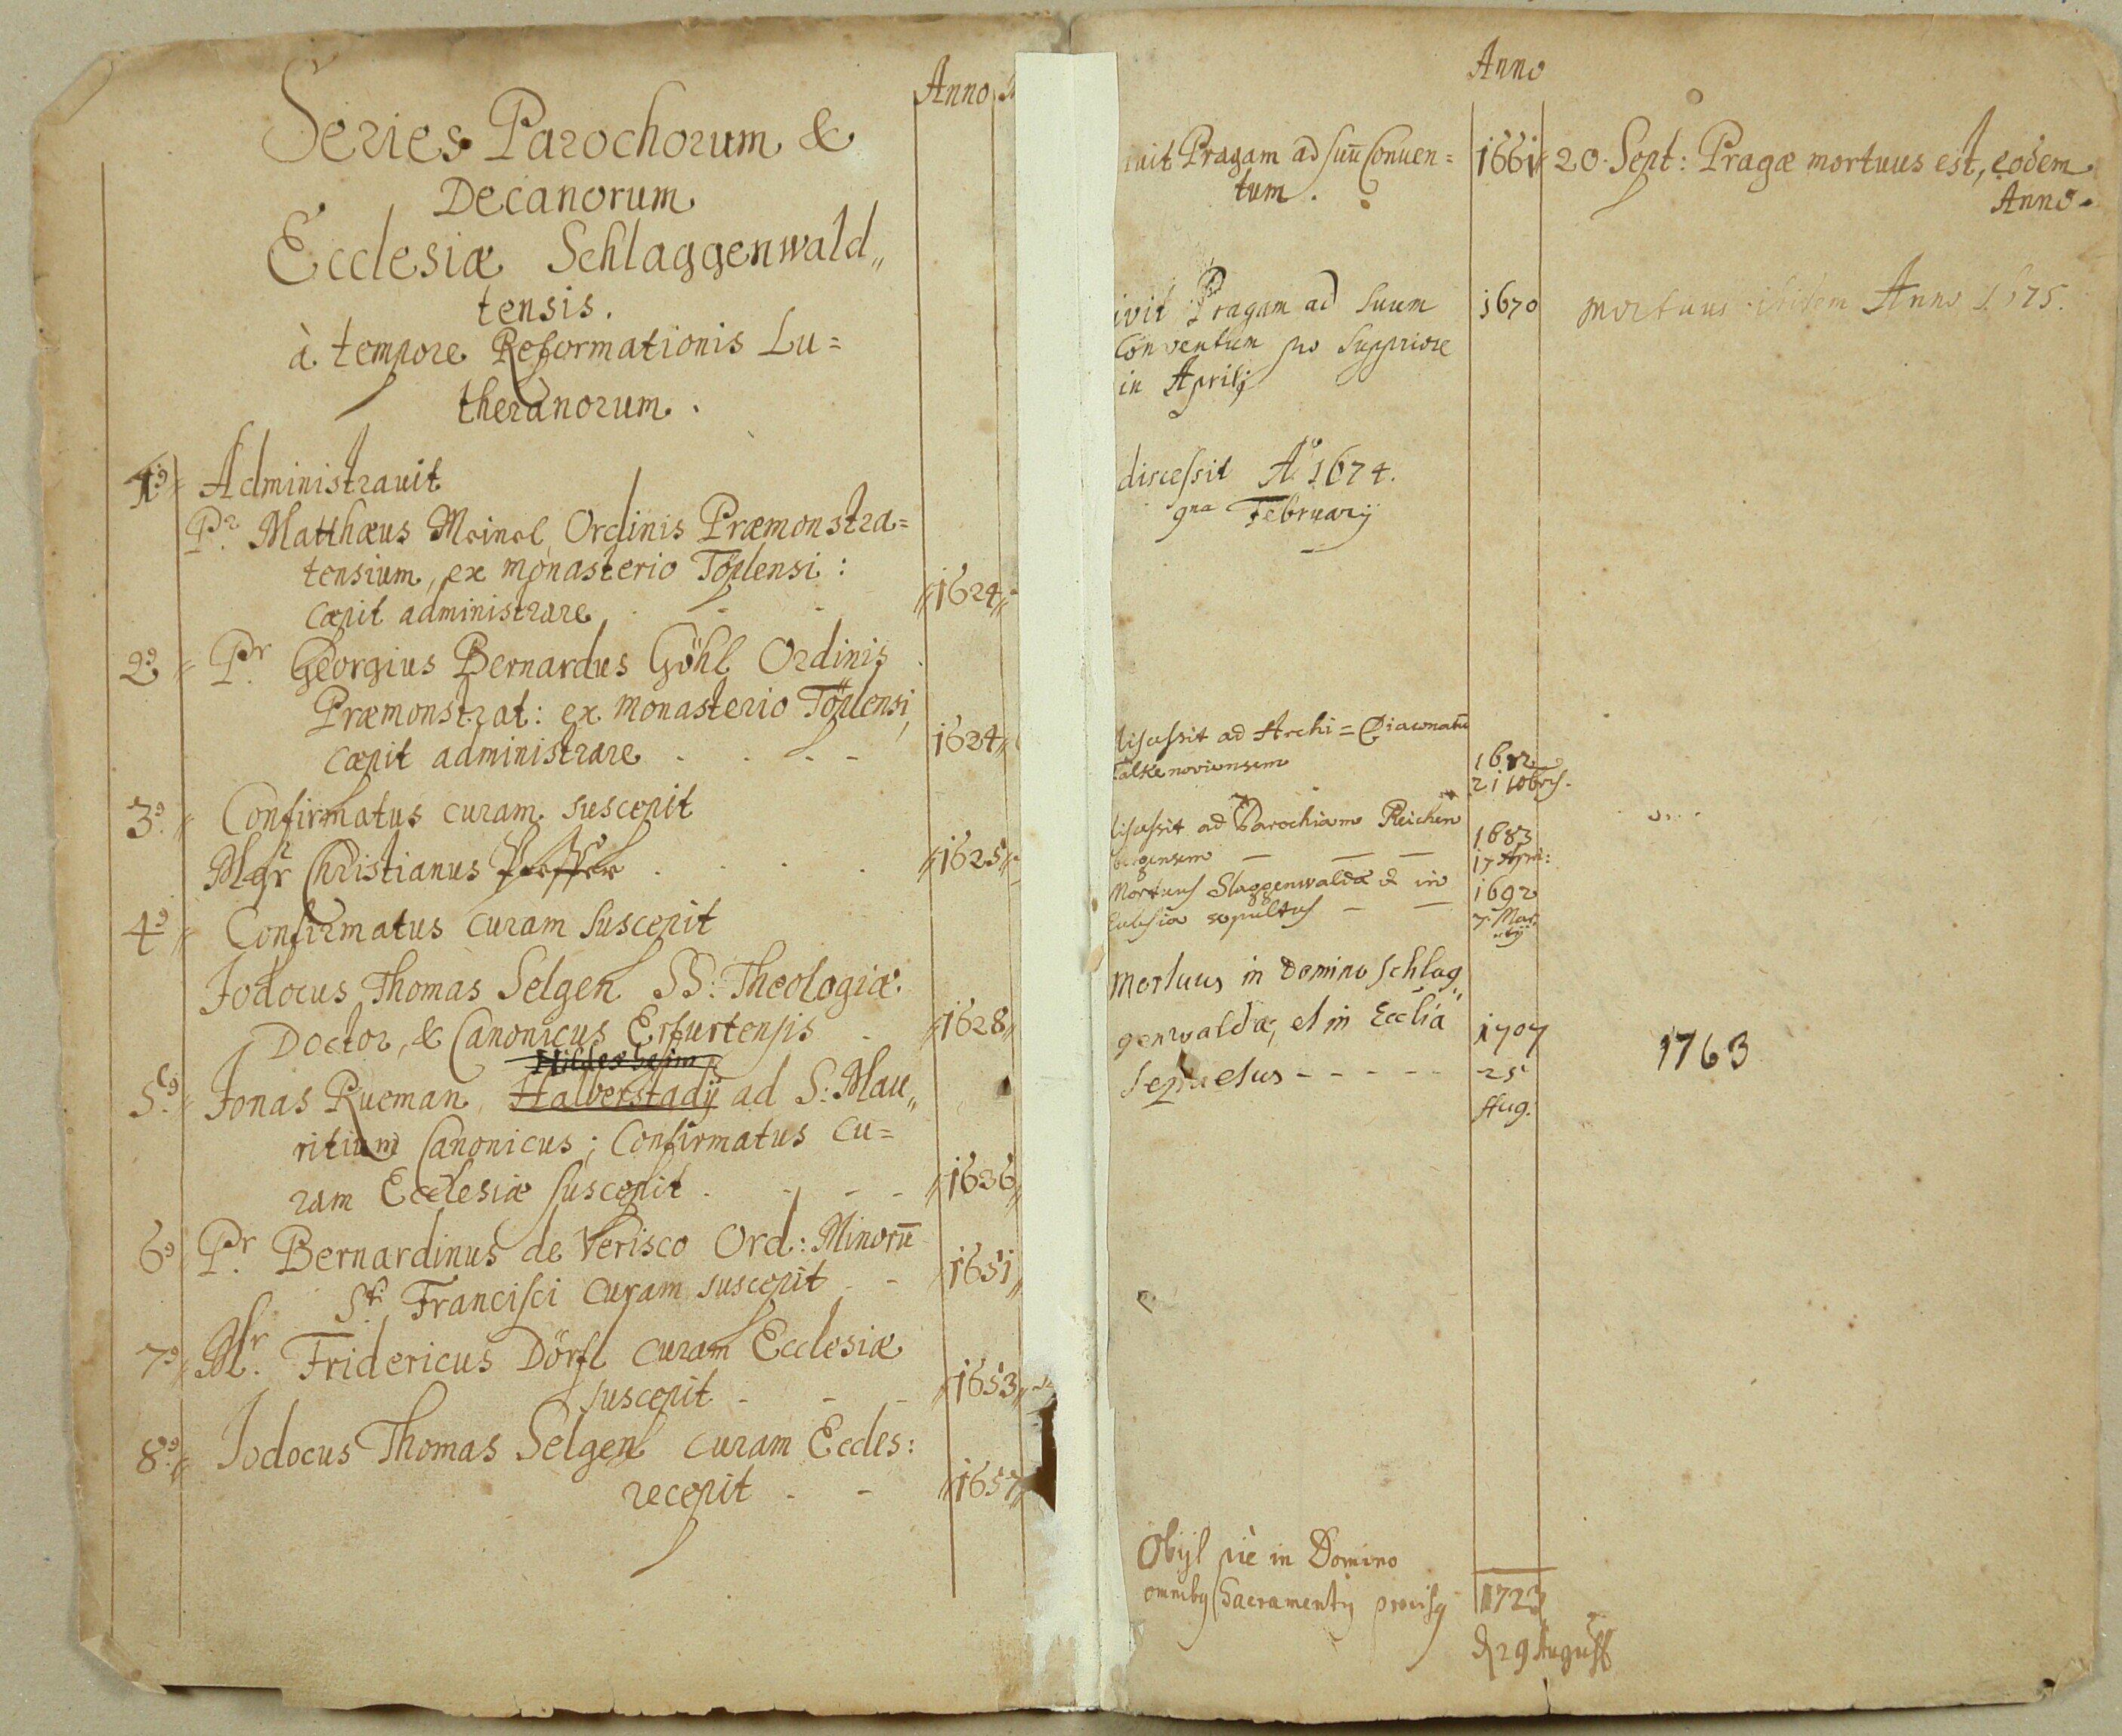 Anno
Series Parochorum &
Decanorum
Ecclesiæ Schlaggenwald„
tensis.
à tempore Reformationis Lu=
theranorum.
1º Administravit
Pr. Matthæus Meinel Ordinis Præmonstra=
tensium, ex monasterio Töplensi:
cœpit administrare 1624
2º Pr. Georgius Bernardus Göhl Ordinis
Præmonstrat: ex monasterio Töplensi,
cœpit administrare . . . - 1624
3º Confirmatus curam suscepit
Mgr Christianus Pfeffer . . . 1625
4º Confirmatus curam suscepit
Jodocus Thomas Selgen SS: Theologiæ
Doctor, & Canonicus Erfurtensis . 1628
Hildesheim
5º Jonas Rueman, Halberstadij ad S: Mau„
ritium Canonicus; Confirmatus cu=
ram Ecclesiæ suscepit . - - - 1636
6º Pr. Bernardinus de Verisco Ord: Minorū
Sti Francisci curam suscepit - - 1651
7º Mr. Fridericus Dörfl curam Ecclesiæ
suscepit - - - 1653
8º Jodocus Thomas Selgen curam Eccles:
recepit - - 1657
Anno
ivit Pragam ad suū Conven= 1661 20. Sept: Pragæ mortuus est, eodem
tum. Anno.
ivit Pragam ad suum 1670 mortuus ibidem Anno 1675.
Conventum pro Suppriore
in Aprilj
discessit Aº 1674.
9na February
discessit ad Archi=Diaconatū
Falkenoviensem 1682
21 10bris.
discessit ad Parochiam Reichen
bergensem — — — 1683
17 Apri:
Mortuus Slaggenwaldæ & in 1692
Eccl­esia sepultus — — 7. Mar
tij
Mortuus in Domino Schlag„
genwaldæ, et in Ecclia 1707
sepuctus - - - - - 25 1763
Aug.
Obijt piè in Domino
omnibg Sacramentis provisg 1723
d 29 August